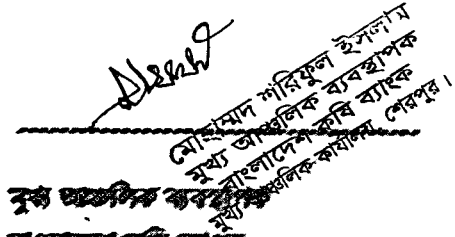 মোহাম্মাদ শরিফুল ইসলাম
মুখ্য আঞ্চলিক ব্যবস্থাপক
বাংলাদেশ কৃষি ব্যাংক
মুখ্য আঞ্চলিক কার্যালয়, শেরপুর।
মুখ্য আঞ্চলিক ব্যবস্থাপক